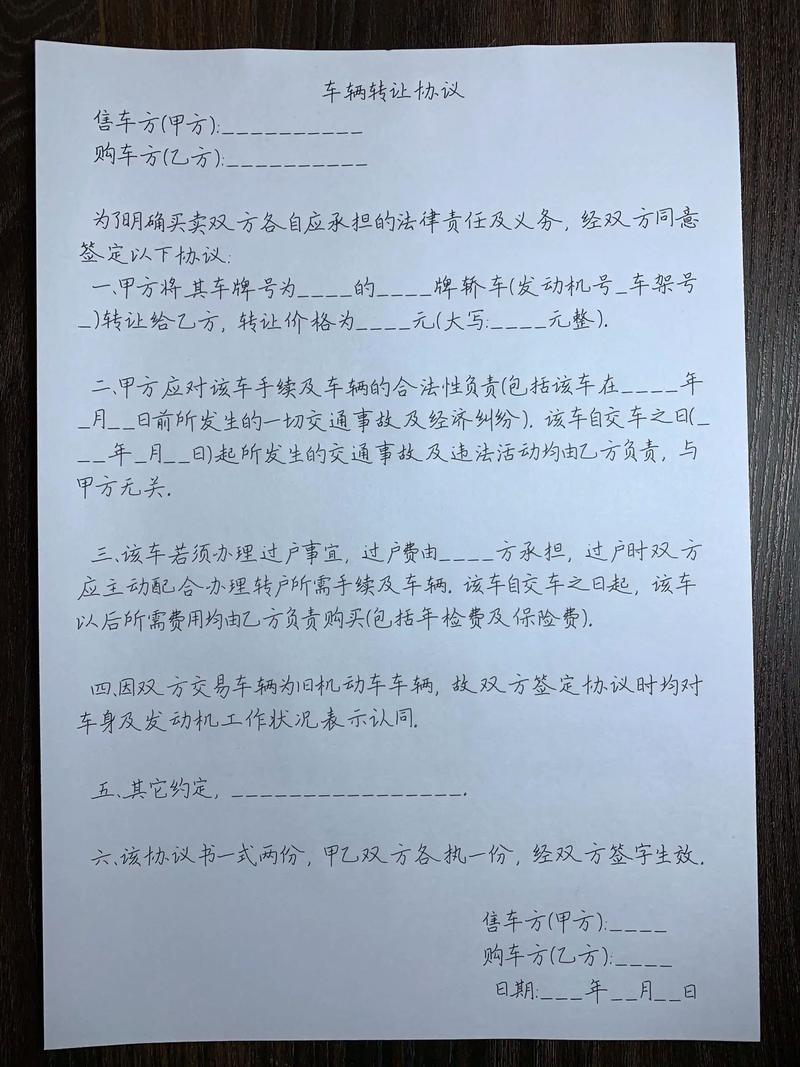 车辆转让协议
售车方(甲方):__________
购车方(乙方):__________
为了明确买卖双方各自应承担的法律责任及义务,经双方同意
签定以下协议:
一.甲方将其车牌号为____的____牌轿车(发动机号_车架号
_)转让给乙方,转让价格为____元(大写:____元整).
二.甲方应对该车手续及车辆的合法性负责(包括该车在____年
_月__日前所发生的一切交通事故及经济纠纷).该车自交车之日(_
__年_月__日)起所发生的交通事故及违法活动均由乙方负责,与
甲方无关.
三、该车若须办理过户事宜,过户费由____方承担,过户时双方
应主动配合办理转户所需手续及车辆.该车自交车之日起,该车
以后所需费用均由乙方负责购买(包括年检费及保险费).
四.因双方交易车辆为旧机动车车辆,故双方签定协议时均对
车身及发动机工作状况表示认同.
五、其它约定,________________.
六、该协议书一式两份,甲乙双方各执一份,经双方签字生效.
售车方(甲方):____
购车方(乙方):____
日期:___年__月__日